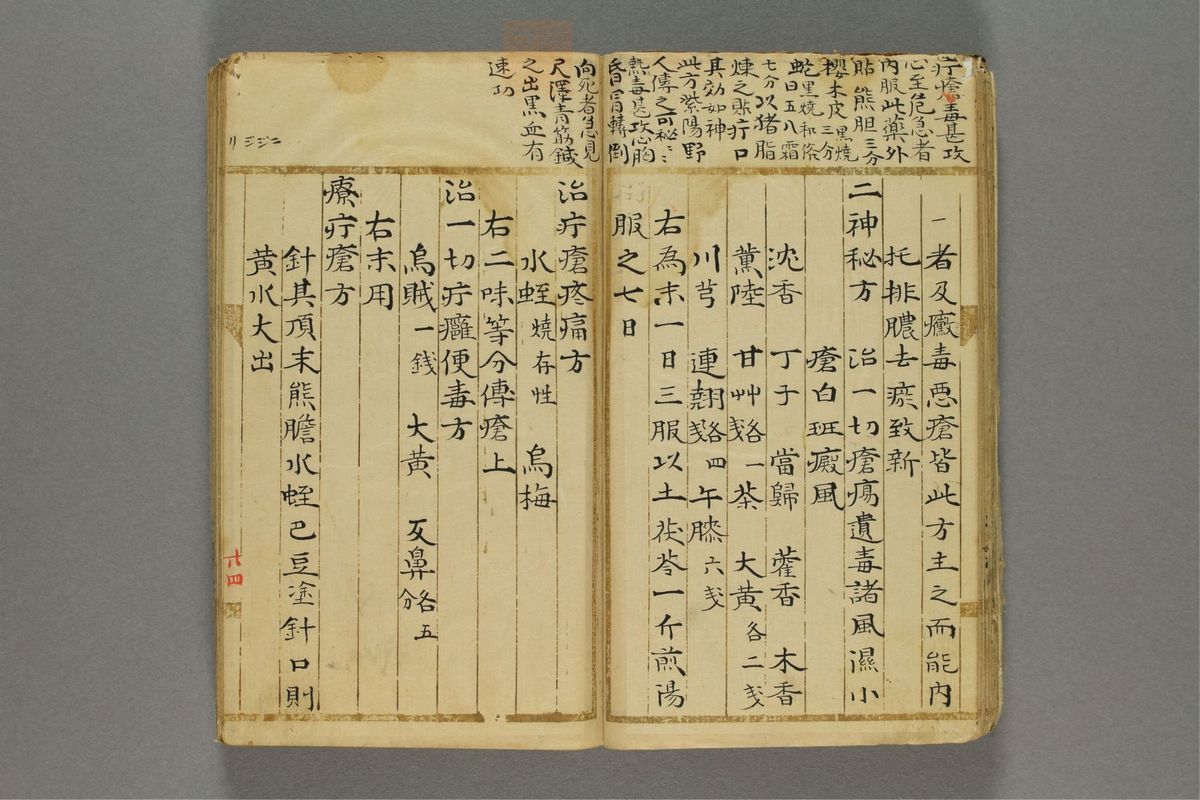 疔瘡毒甚攻
心至危急者
内服此藥外
貼熊胆三分
櫻木皮黒燒三分
蛇黒燒和條
虵日五八霜
七分以猪脂
煉之貼疔口
其効如神
此方紫陽野
人傳之可秘〻
熱毒甚攻心胸
昏冒轉倒
向死者急見
尺澤青筋鍼
之出黒血有
速功
一者及癥毒悪瘡皆此方主之而能内
托排膿去瘀致新
二神秘方 治一切瘡瘍遺毒諸風濕小
瘡白斑癜風
沈香 丁子 當歸 藿香 木香
薫陸 甘艸各一戔 茶 大黄各二戔
川芎 連翹各四戔 午膝六戔
右為末一日三服以土茯苓一斤煎陽
服之七日
治疔瘡疼痛方
水蛭燒存性 烏梅
右二味等分傳瘡上
治一切疔癰便毒方
烏賊一銭 大黄 反鼻各五分
右末用
療疔瘡方
針其頂末熊膽水蛭巴豆塗針口則
黄水大出
廿四